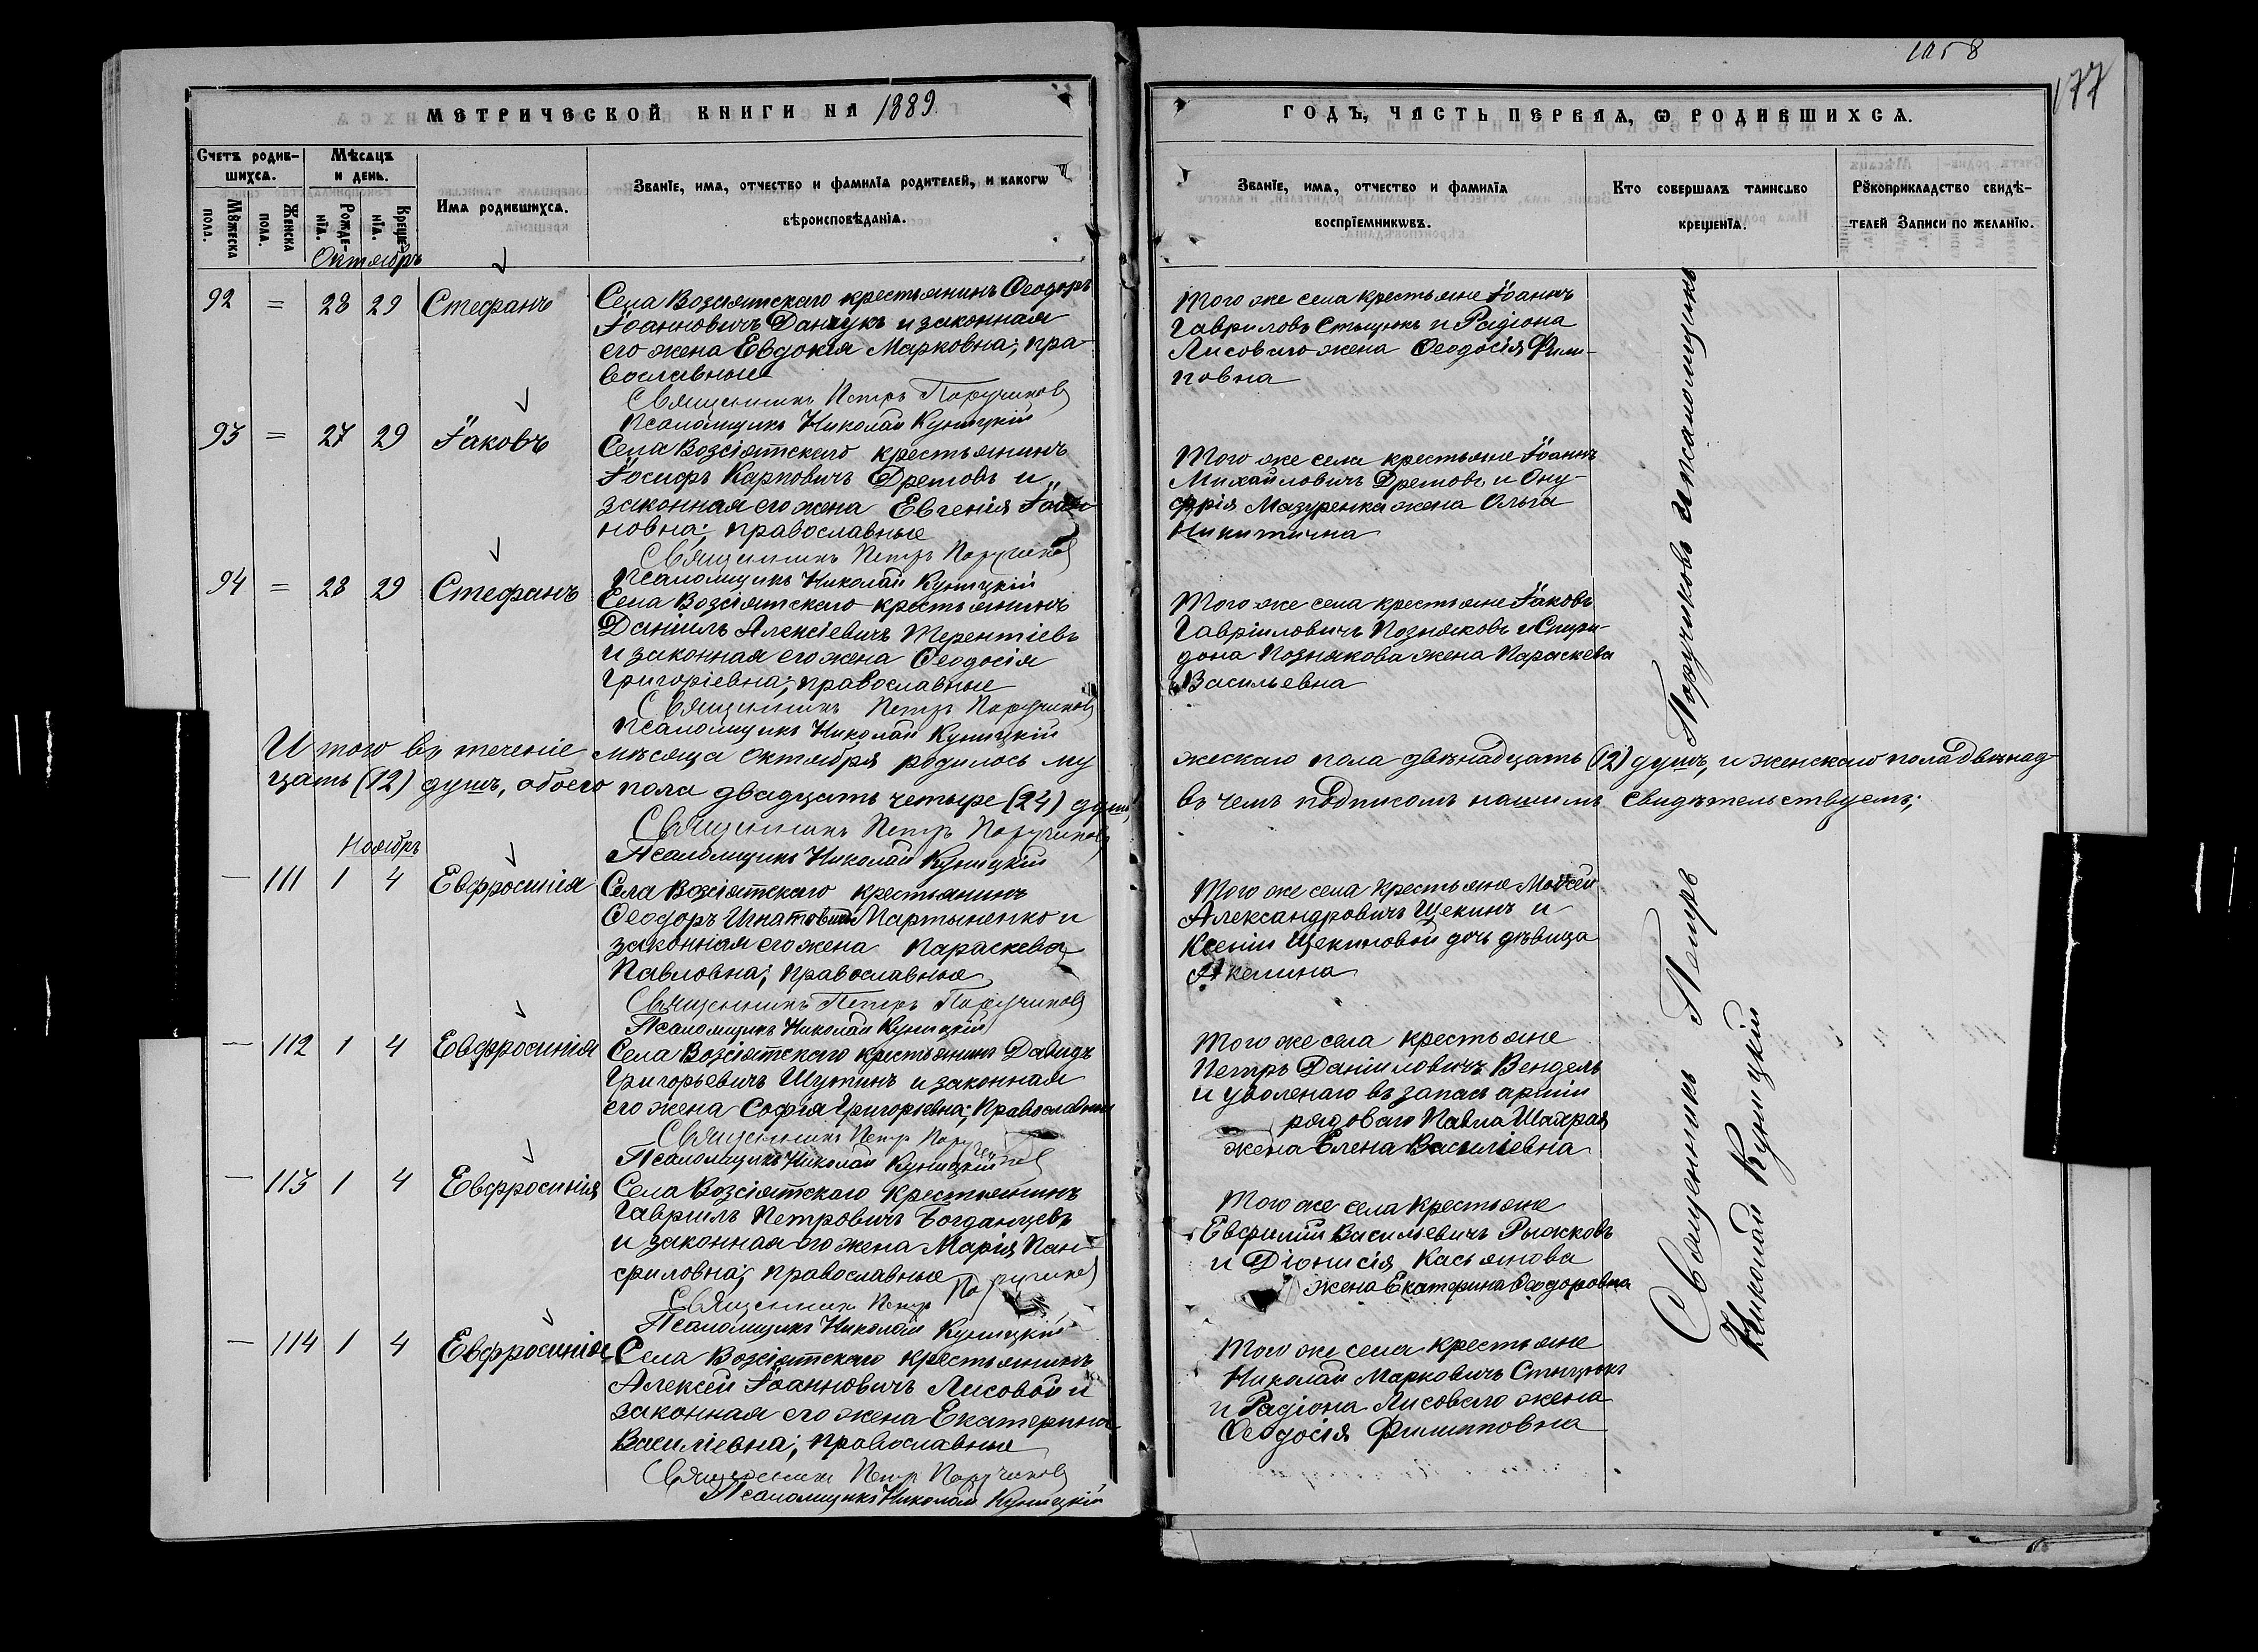 1058
177
МЕТРИЧЕСКОЙ КНИГИ НА 1889.
ГОДЪ, ЧАСТЬ ПЕРВАЯ, Ѡ РОДИВШИХСѦ.
Счетъ родив-
шихсѧ.
Мѣсѧцъ
и день.
Мꙋжеска
пола.
Женска
пола.
Рожде-
нїѧ.
Креще-
нїѧ.
Имѧ родившихсѧ.
Званїе, имѧ, отчество и фамилїѧ родителей, и какогѡ
вѣроисповѣданїѧ.
Званїе, имѧ, отчество и фамилїѧ
воспрїемникѡвъ.
Кто совершалъ таинство
крещенїѧ.
Рꙋкоприкладство свидѣ-
телей Записи по желанїю.
Октябрь
92 = 28 29 Стефанъ
Села Возсіятскаго крестьянинъ Ѳеодоръ
Іоанновичъ Данчукъ и законная
его жена Евдокія Марковна; пра-
вославные
Священникъ Петръ Поручиковъ
Псаломщикъ Николай Куницкій
Того же села крестьяне Іоаннъ
Гавриловъ Стыцюкъ и Радіона
Лисоваго жена Ѳеодосія Фили-
повна
93 = 27 29 Іаковъ
Села Возсіятскаго крестьянинъ
Іосифъ Карповичъ Дремовъ и
законная его жена Евгенія Іоан-
новна; православные
Священникъ Петръ Поручиковъ
Псаломщикъ Николай Куницкій
Того же села крестьяне Іоаннъ
Михайловичъ Дремовъ и Ону-
фрія Мазуренка жена Ольга
Никитична
94 = 28 29 Стефанъ
Села Возсіятскаго крестьянинъ
Даніилъ Алексіевичъ Терентіевъ
и законная его жена Ѳеодосія
Григоріевна; православные
Священникъ Петръ Поручиковъ
Псаломщикъ Николай Куницкій
Того же села крестьяне Іаковъ
Гавріиловичъ Позняковъ и Спири-
дона Познякова жена Параскева
Васильевна
Итого въ теченіе мѣсяца октября родилось му
жескаго пола двѣнадцать (12) душъ, и женскаго пола двѣнад-
цать (12) душъ, обоего пола двадцать четыре (24) душъ,
въ чемъ подписомъ нашимъ свидѣтельствуемъ;
Священникъ Петръ Поручиковъ
Псаломщикъ Николай Куницкій
Ноябрь
— 111 1 4 Евфросинія
Села Возсіятскаго крестьянинъ
Ѳеодоръ Игнатовичъ Мартыненко и
законная его жена Параскева
Павловна; православные
Священникъ Петръ Поручиковъ
Псаломщикъ Николай Куницкій
Того же села крестьяне Моѵсей
Александровичъ Щекинъ и
Ксеніи Щекиновой дочь дѣвица
Акелина
— 112 1 4 Евфросинія
Села Возсіятскаго крестьянинъ Давидъ
Григорьевичъ Шутинъ и законная
его жена Софія Григорьевна; Православные
Священникъ Петръ Поручиковъ
Псаломщикъ Николай Куницкій
Того же села крестьяне
Петръ Даніиловичъ Вендель
и уволенаго въ запасъ арміи
рядоваго Павла Шахрая
жена Елена Василіевна
— 113 1 4 Евфросинія
Села Возсіятскаго Крестьянинъ
Гавріилъ Петровичъ Богданцевъ
и законная его жена Марія Пан-
филовна; православные
Священникъ Петръ Поручиковъ
Псаломщикъ Николай Куницкій
Того же села Крестьяне
Евфимій Васильевичъ Рыжковъ
и Діонисія Касьянова
жена Екатерина Ѳеодоровна
— 114 1 4 Евфросинія
Села Возсіятскаго крестьянинъ
Алексѣй Іоанновичъ Лисовой и
законная его жена Екатерина
Василіевна; православные
Священникъ Петръ Поручиковъ
Псаломщикъ Николай Куницкій
Того же села крестьяне
Николай Марковичъ Стыцюкъ
и Радіона Лисоваго жена
Ѳеодосія Филипповна
Священникъ Петръ Поручиковъ и псаломщикъ
Николай Куницкій